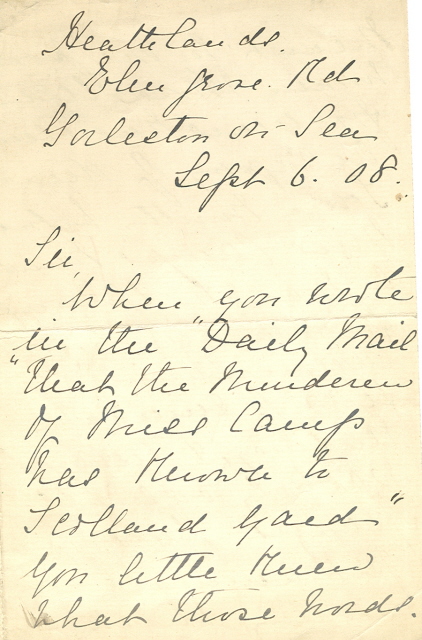 Heathlands.
Elm Grove. Rd
Gorleston on Sea
Sept 6. 08.
Sir,
When you wrote
in the "Daily Mail
"that the Murderer
of Miss Camp
was known to
Scotland Yard"
you little knew
what those words.